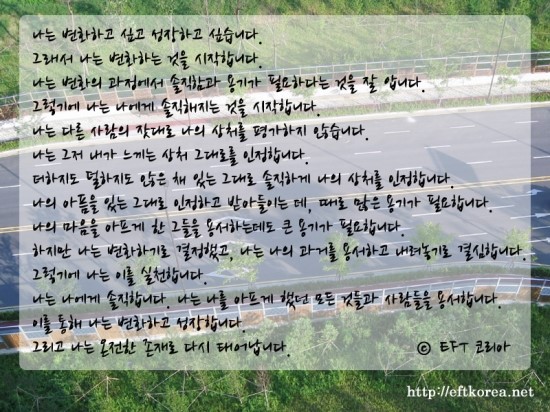 나는 변화하고 싶고 성장하고 싶습니다.
그래서 나는 변화하는 것을 시작합니다.
나는 변화의 과정에서 솔직함과 용기가 필요하다는 것을 잘 압니다.
그렇기에 나는 나에게 솔직해지는 것을 시작합니다.
나는 다른 사람의 잣대로 나의 상처를 평가하지 않습니다.
나는 그저 내가 느끼는 상처 그대로를 인정합니다.
더하지도 덜하지도 않은 채 있는 그대로 솔직하게 나의 상처를 인정합니다.
나의 아픔을 있는 그대로 인정하고 받아들이는 데, 때로 많은 용기가 필요합니다.
나의 마음을 아프게 한 그들을 용서하는데도 큰 용기가 필요합니다.
하지만 나는 변화하기로 결정했고, 나는 나의 과거를 용서하고 내려놓기로 결심합니다.
그렇기에 나는 이를 실천합니다.
나는 나에게 솔직합니다. 나는 나를 아프게 했던 모든 것들과 사람들을 용서합니다.
이를 통해 나는 변화하고 성장합니다.
그리고 나는 온전한 존재로 다시 태어납니다. © EFT 코리아
http://eftkorea.net